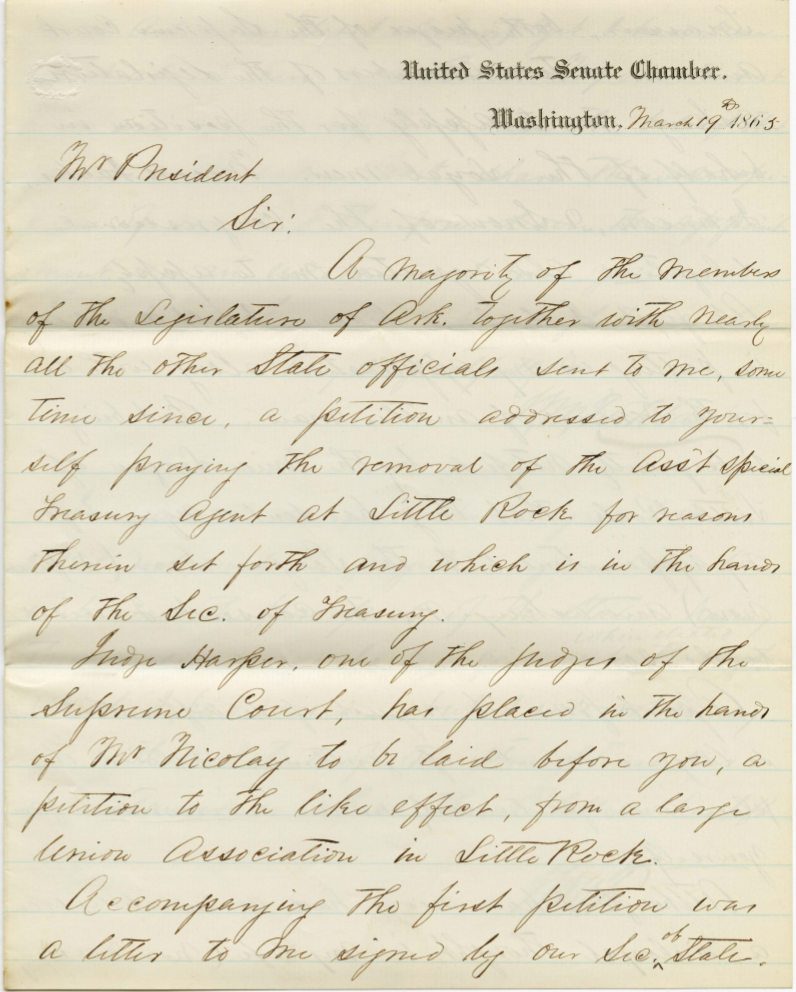 United States Senate Chamber.
Washington, March 19th 1865
Mr President
Sir:
A majority of the members
of the Legislature of Ark. together with nearly
all the other State officials sent to me, some
time since, a petition addressed to your=
self praying the removal of the Ass't special
Treasury Agent at Little Rock for reasons
therein set forth and which is in the hands
of the Sec. of Treasury.
Judge Harper, one of the judges of the
Supreme Court, has placed in the hands
of Mr Nicolay to be laid before you, a
petition to the like effect, from a large
Union Association in Little Rock.
Accompanying the first petition was
a letter to me signed by our Sec. of State.